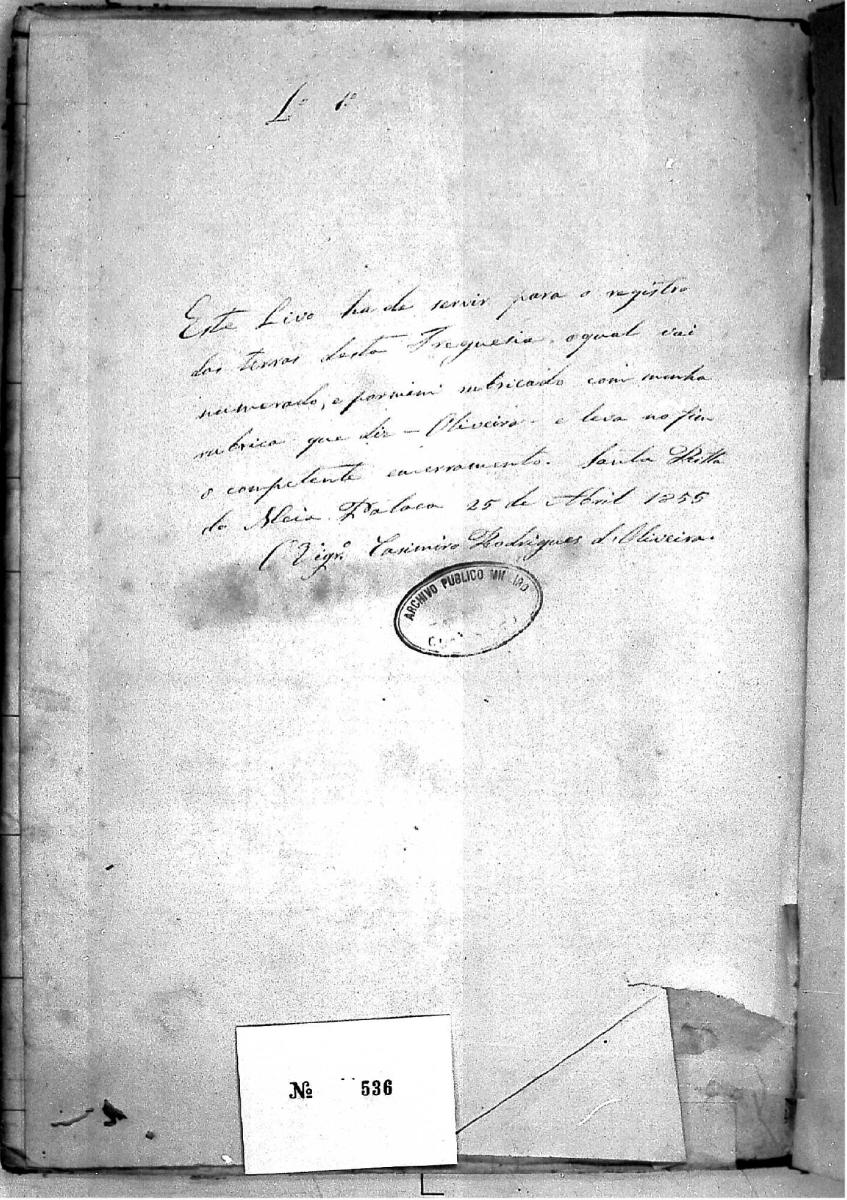 Lº 1º
Este Livo ha de servir para o registro
das terras desta Freguesia, o qual vai
numerado, e por mim rubricado com minha
rubrica que diz - Oliveira - e leva no fim
o competente encerramento. Santa Ritta
da Meia Pataca 25 de Abril 1855
O Vigrº Casimiro Rodrigues d'Oliveira.
ARCHIVO PUBLICO MINEIRO
Nº 536